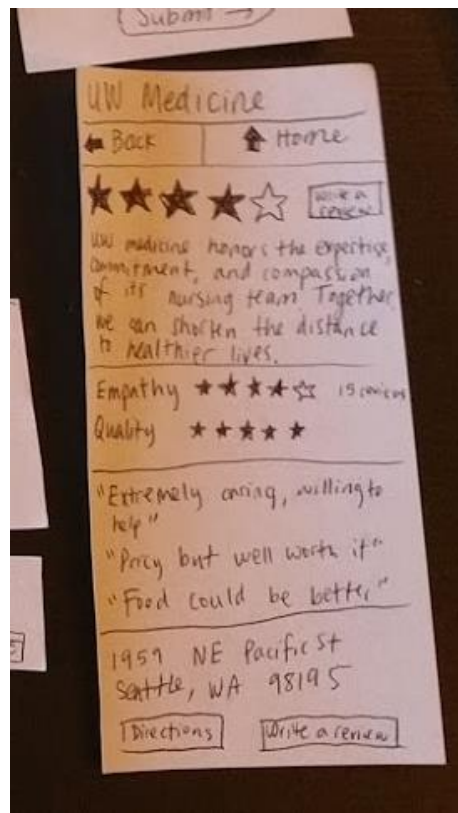 Submit →
UW Medicine
Back
Home
Write a
review
UW medicine honors the expertise,
commitment, and compassion
of its nursing team Together,
we can shorten the distance
to healthier lives.
Empathy
15 reviews
Quality
"Extremely caring, willing to
help"
"Pricy but well worth it"
"Food could be better"
1959 NE Pacific St
Seattle, WA 98195
Directions
Write a review